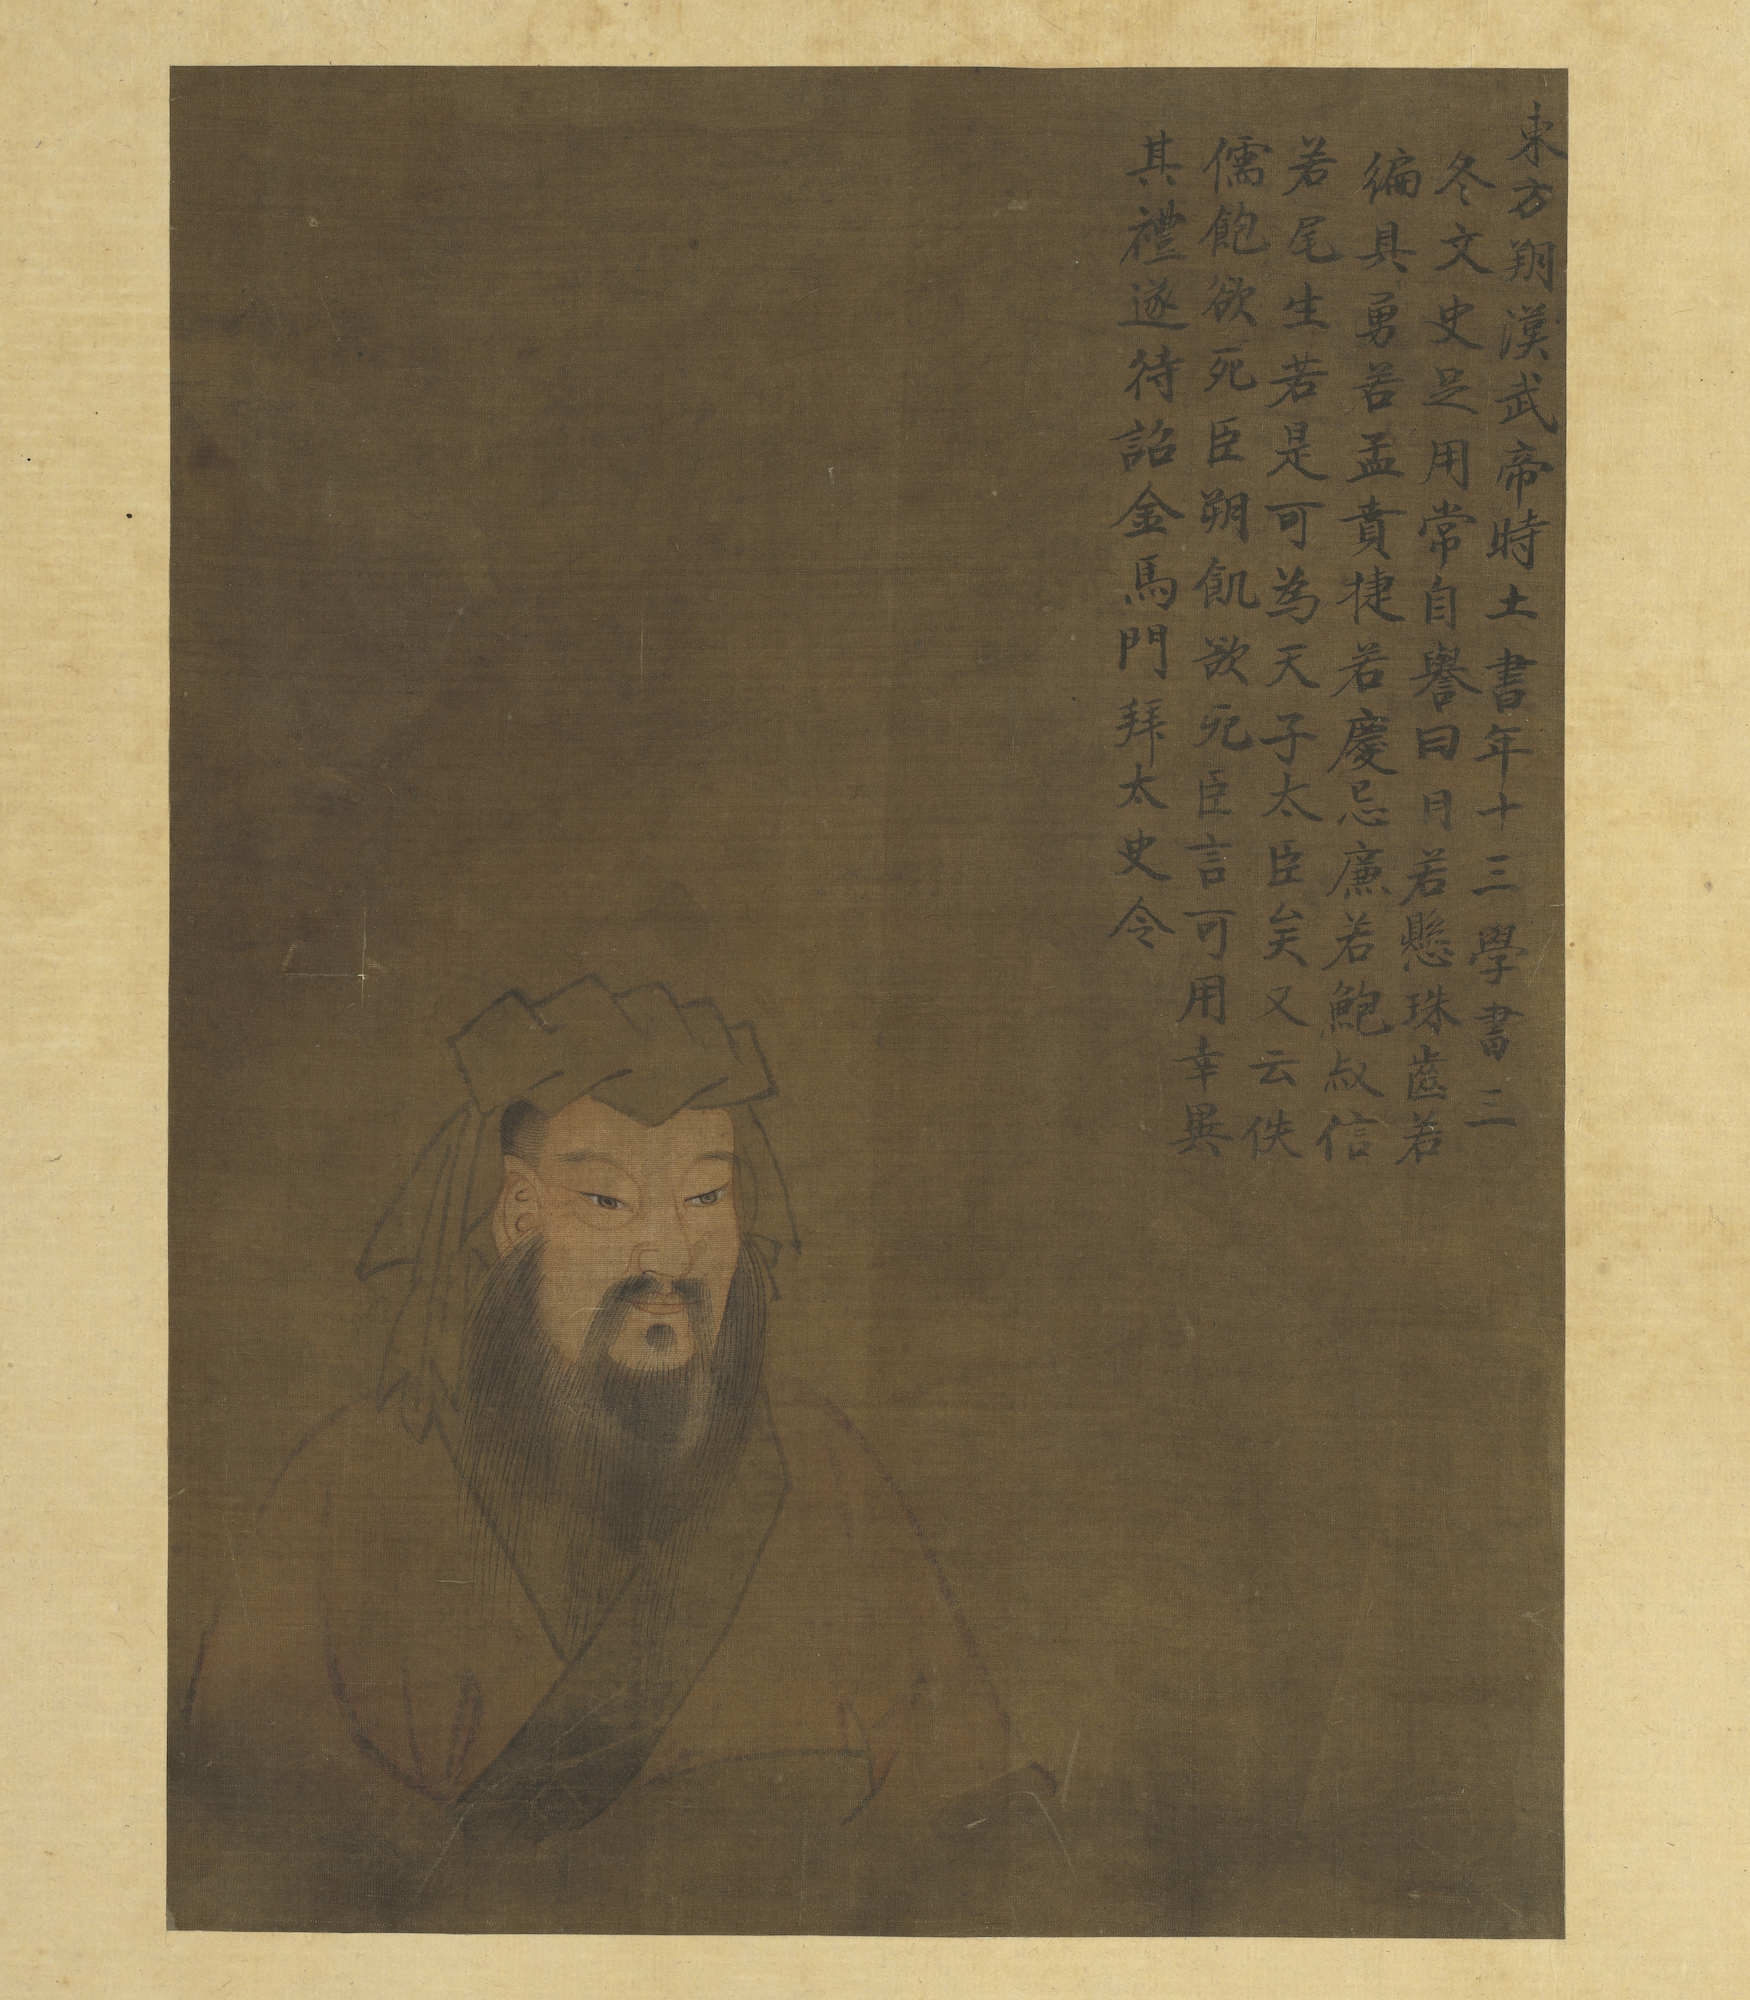 東方翔漢武帝時土書年十三學書三
冬文史足用常自譽曰月若懸珠齒若
編具勇若孟賁捷若慶忌廉若鮑叔信
若尾生若是可為天子太臣矣又云佚
儒飽欲死臣朔飢欲死臣言可用幸異
其禮遂待詔金馬門拜太史令